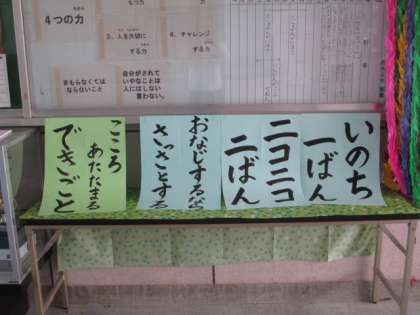 いのち
一ばん
ニコニコ
二ばん
おなじするなら
さっさとする
こころ
あたたまる
できごと
4つの力
もつ力
3、人を大切に
する力
4、チャレンジ
する力
まもらなくては
ならないこと
自分がされて
いやなことは
人にはしない
言わない。